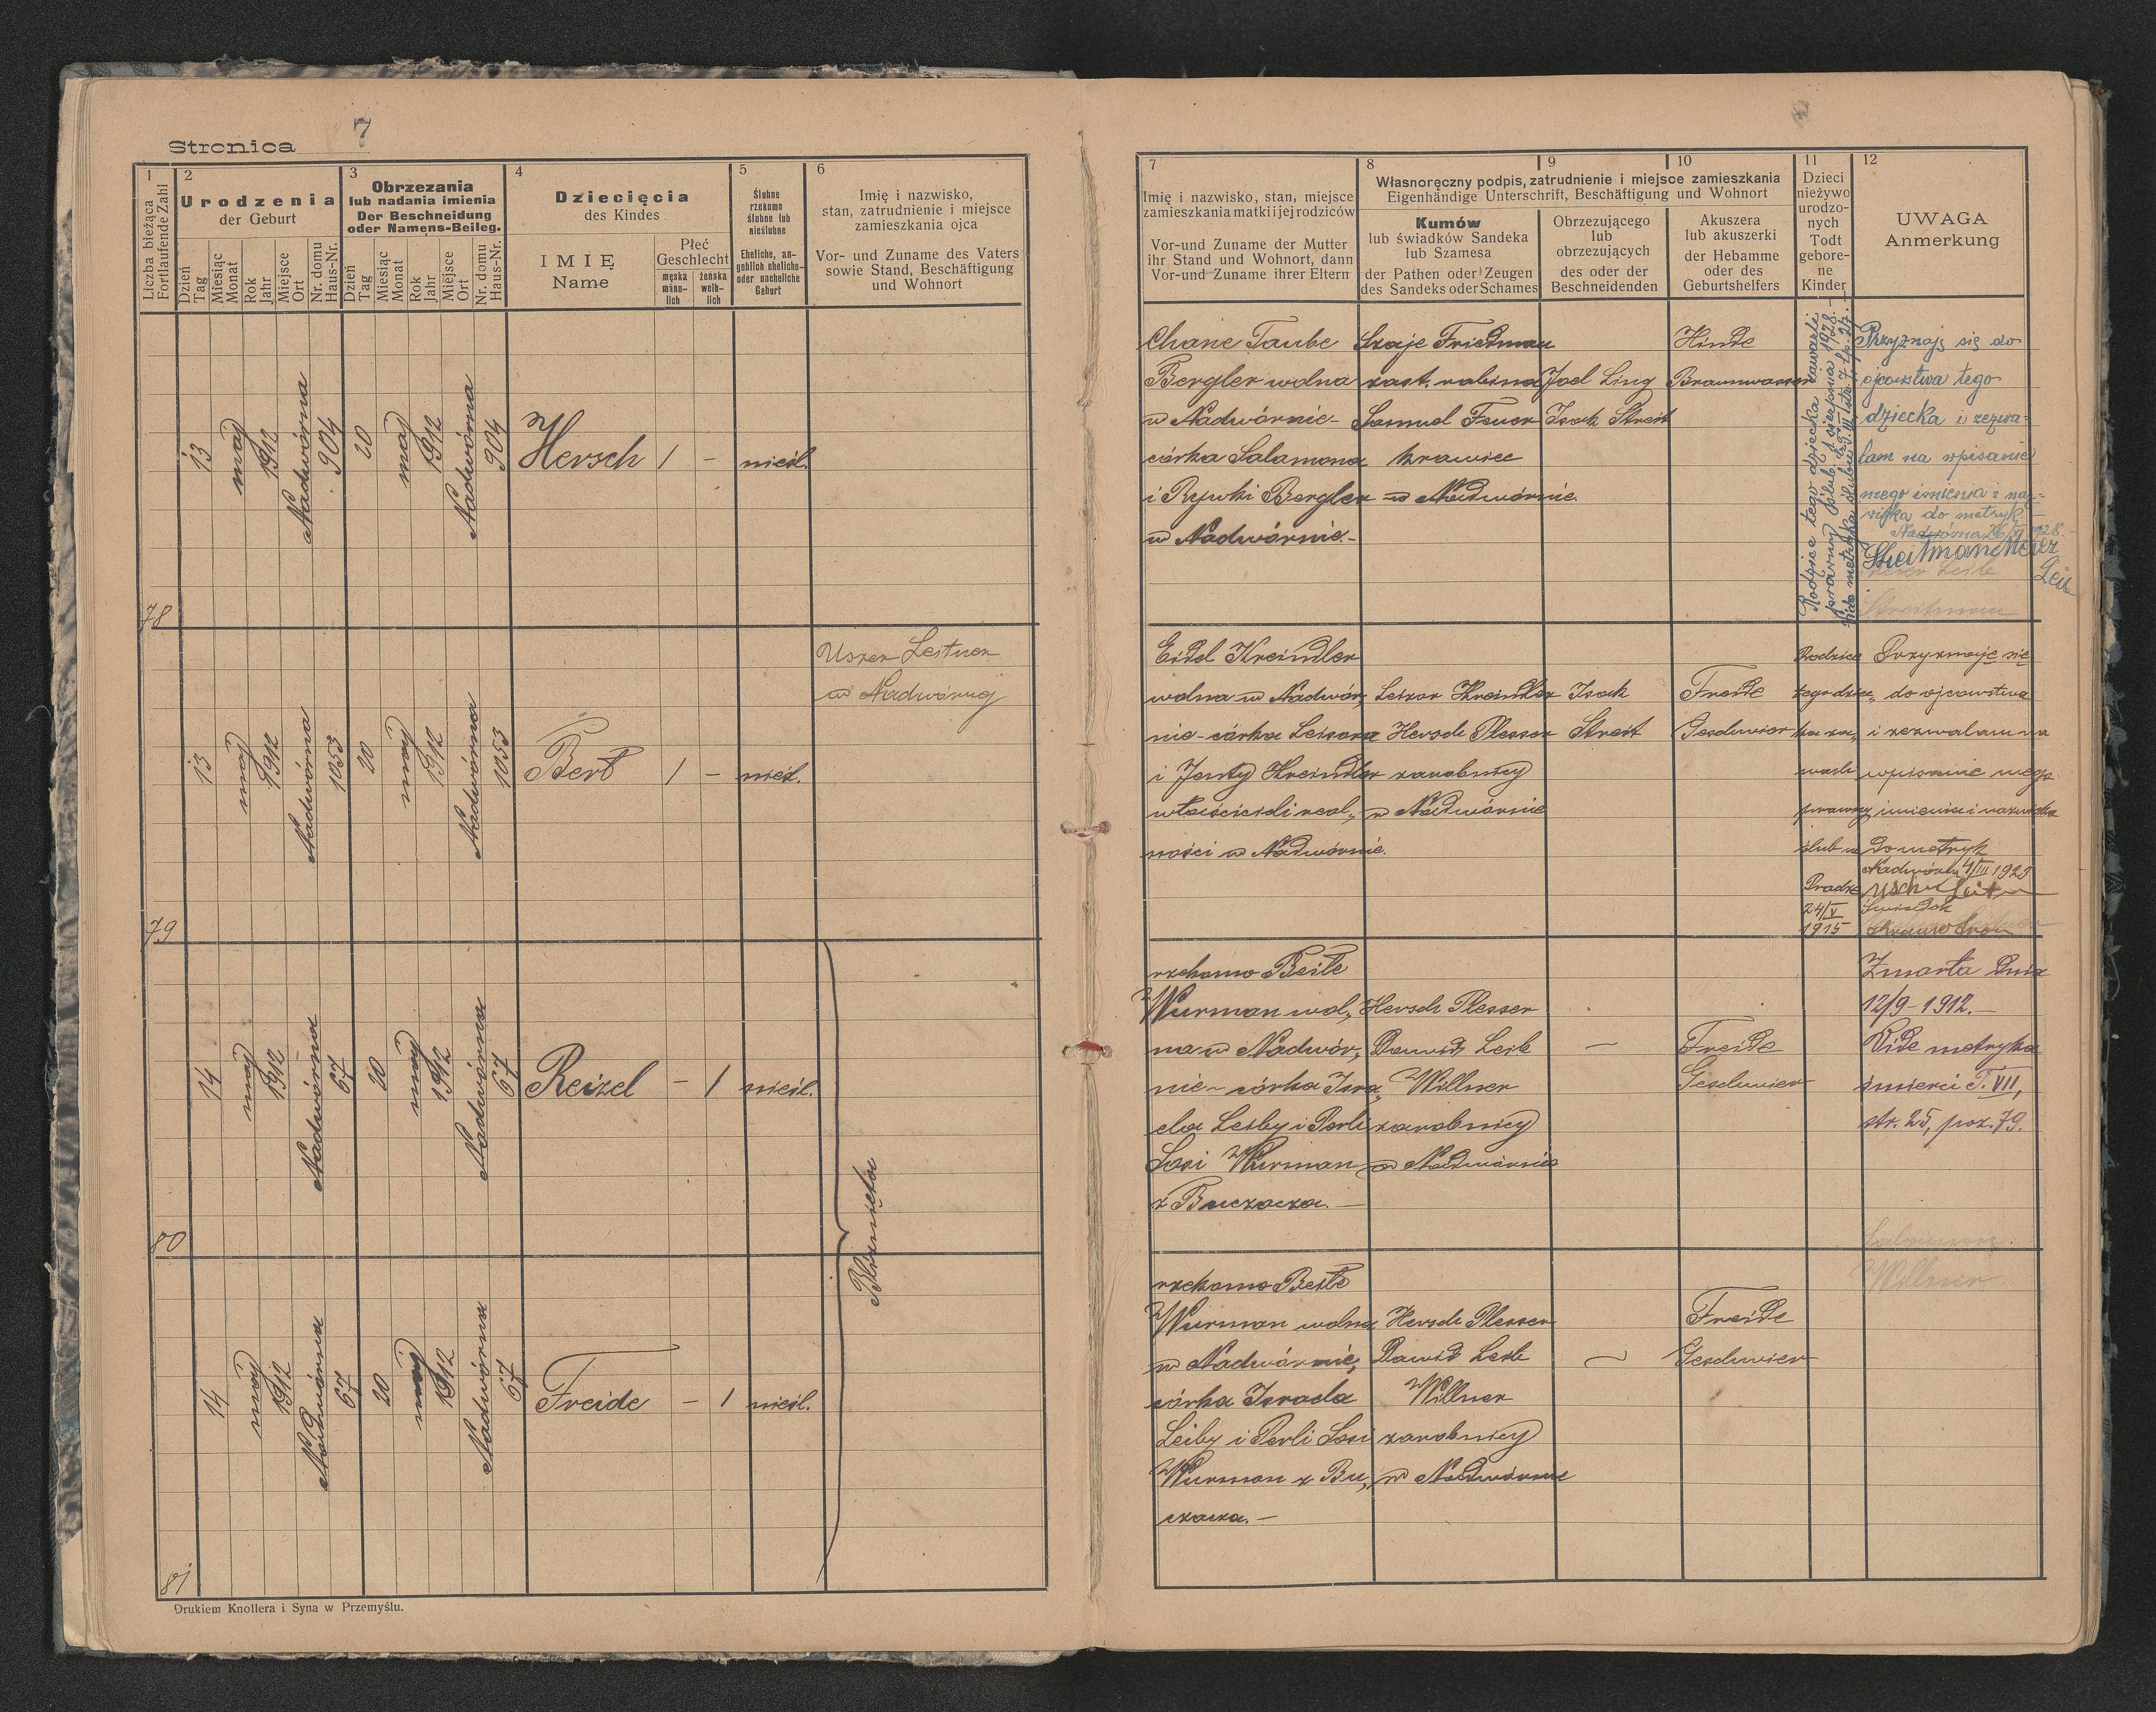 Stronica 7
1
2
3
4
5
6
Liczba bieżąca
Fortlaufende Zahl
Urodzenia
der Geburt
Dzień
Tag
Miesiąc
Monat
Rok
Jahr
Miejsce
Ort
Nr. domu
Haus-Nr.
Obrzezania
lub nadania imienia
Der Beschneidung
oder Namens-Beileg.
Dzień
Tag
Miesiąc
Monat
Rok
Jahr
Miejsce
Ort
Nr. domu
Haus-Nr.
Dziecięcia
des Kindes
IMIĘ
Name
Płeć
Geschlecht
męska
männ-
lich
żeńska
weib-
lich
Ślubne
rzekomo
ślubne lub
nieślubne
Eheliche, an-
geblich eheliche-
oder uneheliche
Geburt
Imię i nazwisko,
stan, zatrudnienie i miejsce
zamieszkania ojca
Vor- und Zuname des Vaters
sowie Stand, Beschäftigung
und Wohnort
78
13
maj
1912
Nadwórna
904
20
maj
1912
Nadwórna
904
Hersch
1
-
nieśl.
79
13
maj
1912
Nadwórna
1053
20
maj
1912
Nadwórna
1053
Bert
1
-
nieśl.
Uszer Leitner
w Nadwórnej
80
14
maj
1912
Nadwórna
67
20
maj
1912
Nadwórna
67
Reizel
-
1
nieśl.
Bliźnięta
81
14
maj
1912
Nadwórna
67
20
maj
1912
Nadwórna
67
Freide
-
1
nieśl.
Drukiem Knollera i Syna w Przemyślu.
7
8
9
10
11
12
Imię i nazwisko, stan, miejsce
zamieszkania matki i jej rodziców
Vor-und Zuname der Mutter
ihr Stand und Wohnort, dann
Vor-und Zuname ihrer Eltern
Własnoręczny podpis, zatrudnienie i miejsce zamieszkania
Eigenhändige Unterschrift, Beschäftigung und Wohnort
Kumów
lub świadków Sandeka
lub Szamesa
der Pathen oder Zeugen
des Sandeks oder Schames
Obrzezującego
lub
obrzezujących
des oder der
Beschneidenden
Akuszera
lub akuszerki
der Hebamme
oder des
Geburtshelfers
Dzieci
nieżywo
urodzo-
nych
Todt
gebore-
ne
Kinder
UWAGA
Anmerkung
Chane Taube
Bergler wolna
w Nadwórnie-
córka Salamona
i Rywki Bergler
w Nadwórnie.-
Szaje Friedman
zast. rabina
Samuel Feuer
krawiec
w Nadwórnie
Joel Ling
Isak Streit
Hinde
Braunwasser
Rodzice tego dziecka zawarli
prawny ślub 5 sierpnia 1928.-
Przyznaję się do
ojcostwa tego
dziecka i zezwa=
lam na wpisanie
mego imienia i naz=
wiska do metryk
Streitman Meier
Leib
Meier Leib
Streitman
Eidel Kreindler
wolna w Nadwór„
nie-córka Leisora
i Jenty Kreindler
właścicieli real„
ności w Nadwórnie.
Leizor Kreindler
Hersch Plesser
zarobnicy
w Nadwórnie
Isak
Streit
Freide
Geschwier
Rodzice
tego dziec„
ka za„
warli
prawny
ślub w
24/V
1915
Przyznaję się
do ojcowstwa
i zezwalam na
wpisanie mego
imienia i nazwiska
do metryk
Nadwórna 4/III 1925
Świadek
rzekomo Beile
Wurman wol„
na w Nadwór„
nie- córka Isra„
ela Leiby i Perli
Sosi Wurman
z Buczacza.-
Hersch Plesser
Dawid Leib
Willner
zarobnicy
w Nadwórnie
-
Freide
Geschwier
Zmarła dnia
12/9-1912.-
Vide metryka
śmierci T. VII,
str. 25, poz. 79.
Salamon
Willner
rzekomo Beile
Wurman wolna
w Nadwórnie,
córka Israela
Leiby i Perli Sosi
Wurman z Bu„
czacza.-
Hersch Plesser
Dawid Leib
Willner
zarobnicy
w Nadwórnie
-
Freide
Geschwier